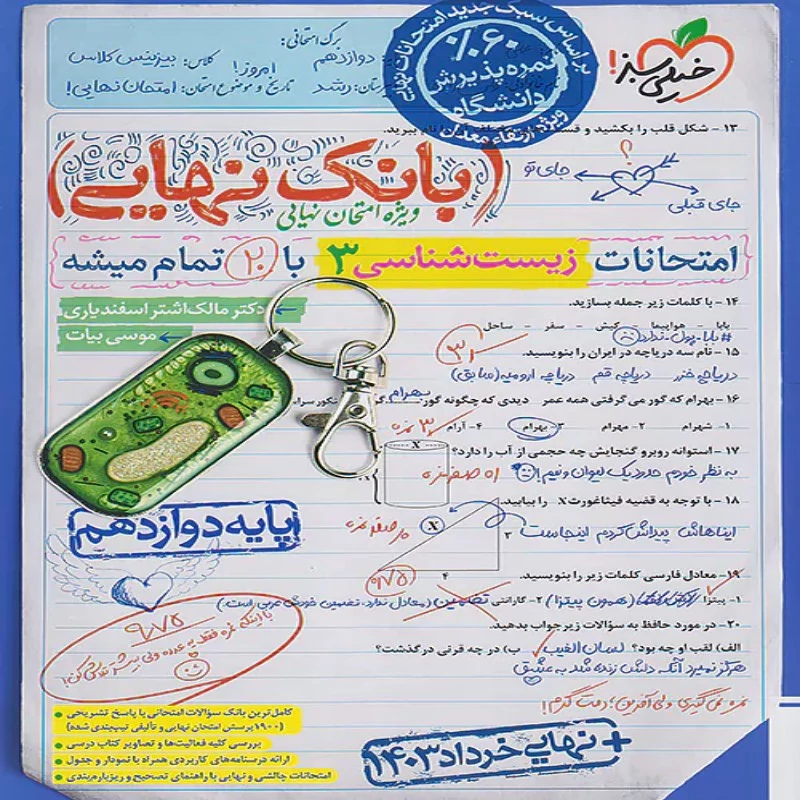 خیلی سبز!
براساس سبک جدید امتحانات نهایی
۶۰٪
نمره پذیرش
دانشگاه
ویژه ارتقاء معدل
برگ امتحانی:
دوازدهم
کلاس: بیزینس کلاس
امروز!
رشد
تاریخ و موضوع امتحان: امتحان نهایی!
۱۳ - شکل قلب را بکشید و
نام ببرید.
؟
جای تو
جای قبلی
(بانک نهایی)
ویژه امتحان نهایی
{امتحانات زیست‌شناسی ۳ با ۲۰ تمام میشه}
دکتر مالک‌اشتر اسفندیاری
موسی بیات
۱۴ - با کلمات زیر جمله بسازید.
بابا - هواپیما - کیش - سفر - ساحل
#بابا_پول_ندارد
۱۵ - نام سه دریاچه در ایران را بنویسید.
دریاچه خزر دریاچه قم دریاچه ارومیه (سابق)
۱۶ - بهرام که گور می گرفتی همه عمر دیدی که چگونه گور بهرام
۱- شهرام ۲- مهرام ۳- بهرام ۴- آرام
۱۷ - استوانه روبرو گنجایش چه حجمی از آب را دارد؟
به نظر خودم حدود یک لیوان و نیم!
X
۱۸ - با توجه به قضیه فیثاغورث X را بیابید.
ایناهاش پیداش کردم اینجاست
X
۳
۴
پایه دوازدهم
۱۹ - معادل فارسی کلمات زیر را بنویسید.
۱- پیتزا (همون پیتزا) ۲- گارانتی تضمین (معادل ندارد، تضمین خودش عربی است.)
۲۰ - در مورد حافظ به سؤالات زیر جواب بدهید.
الف) لقب او چه بود؟ لسان الغیب ب) در چه قرنی درگذشت؟
هرگز نمیرد آنکه دلش زنده شد به عشق
۹/۷۵
نمره نمی‌گیری ولی آفرین؛ دمت گرم!
کامل‌ترین بانک سؤالات امتحانی با پاسخ تشریحی
(۱۹۰۰ پرسش امتحان نهایی و تألیفی تیپ‌بندی شده)
بررسی کلیه فعالیت‌ها و تصاویر کتاب درسی
ارائه درسنامه‌های کاربردی همراه با نمودار و جدول
امتحانات چالشی و نهایی با راهنمای تصحیح و ریزبارم‌بندی
+ نهایی خرداد ۱۴۰۳